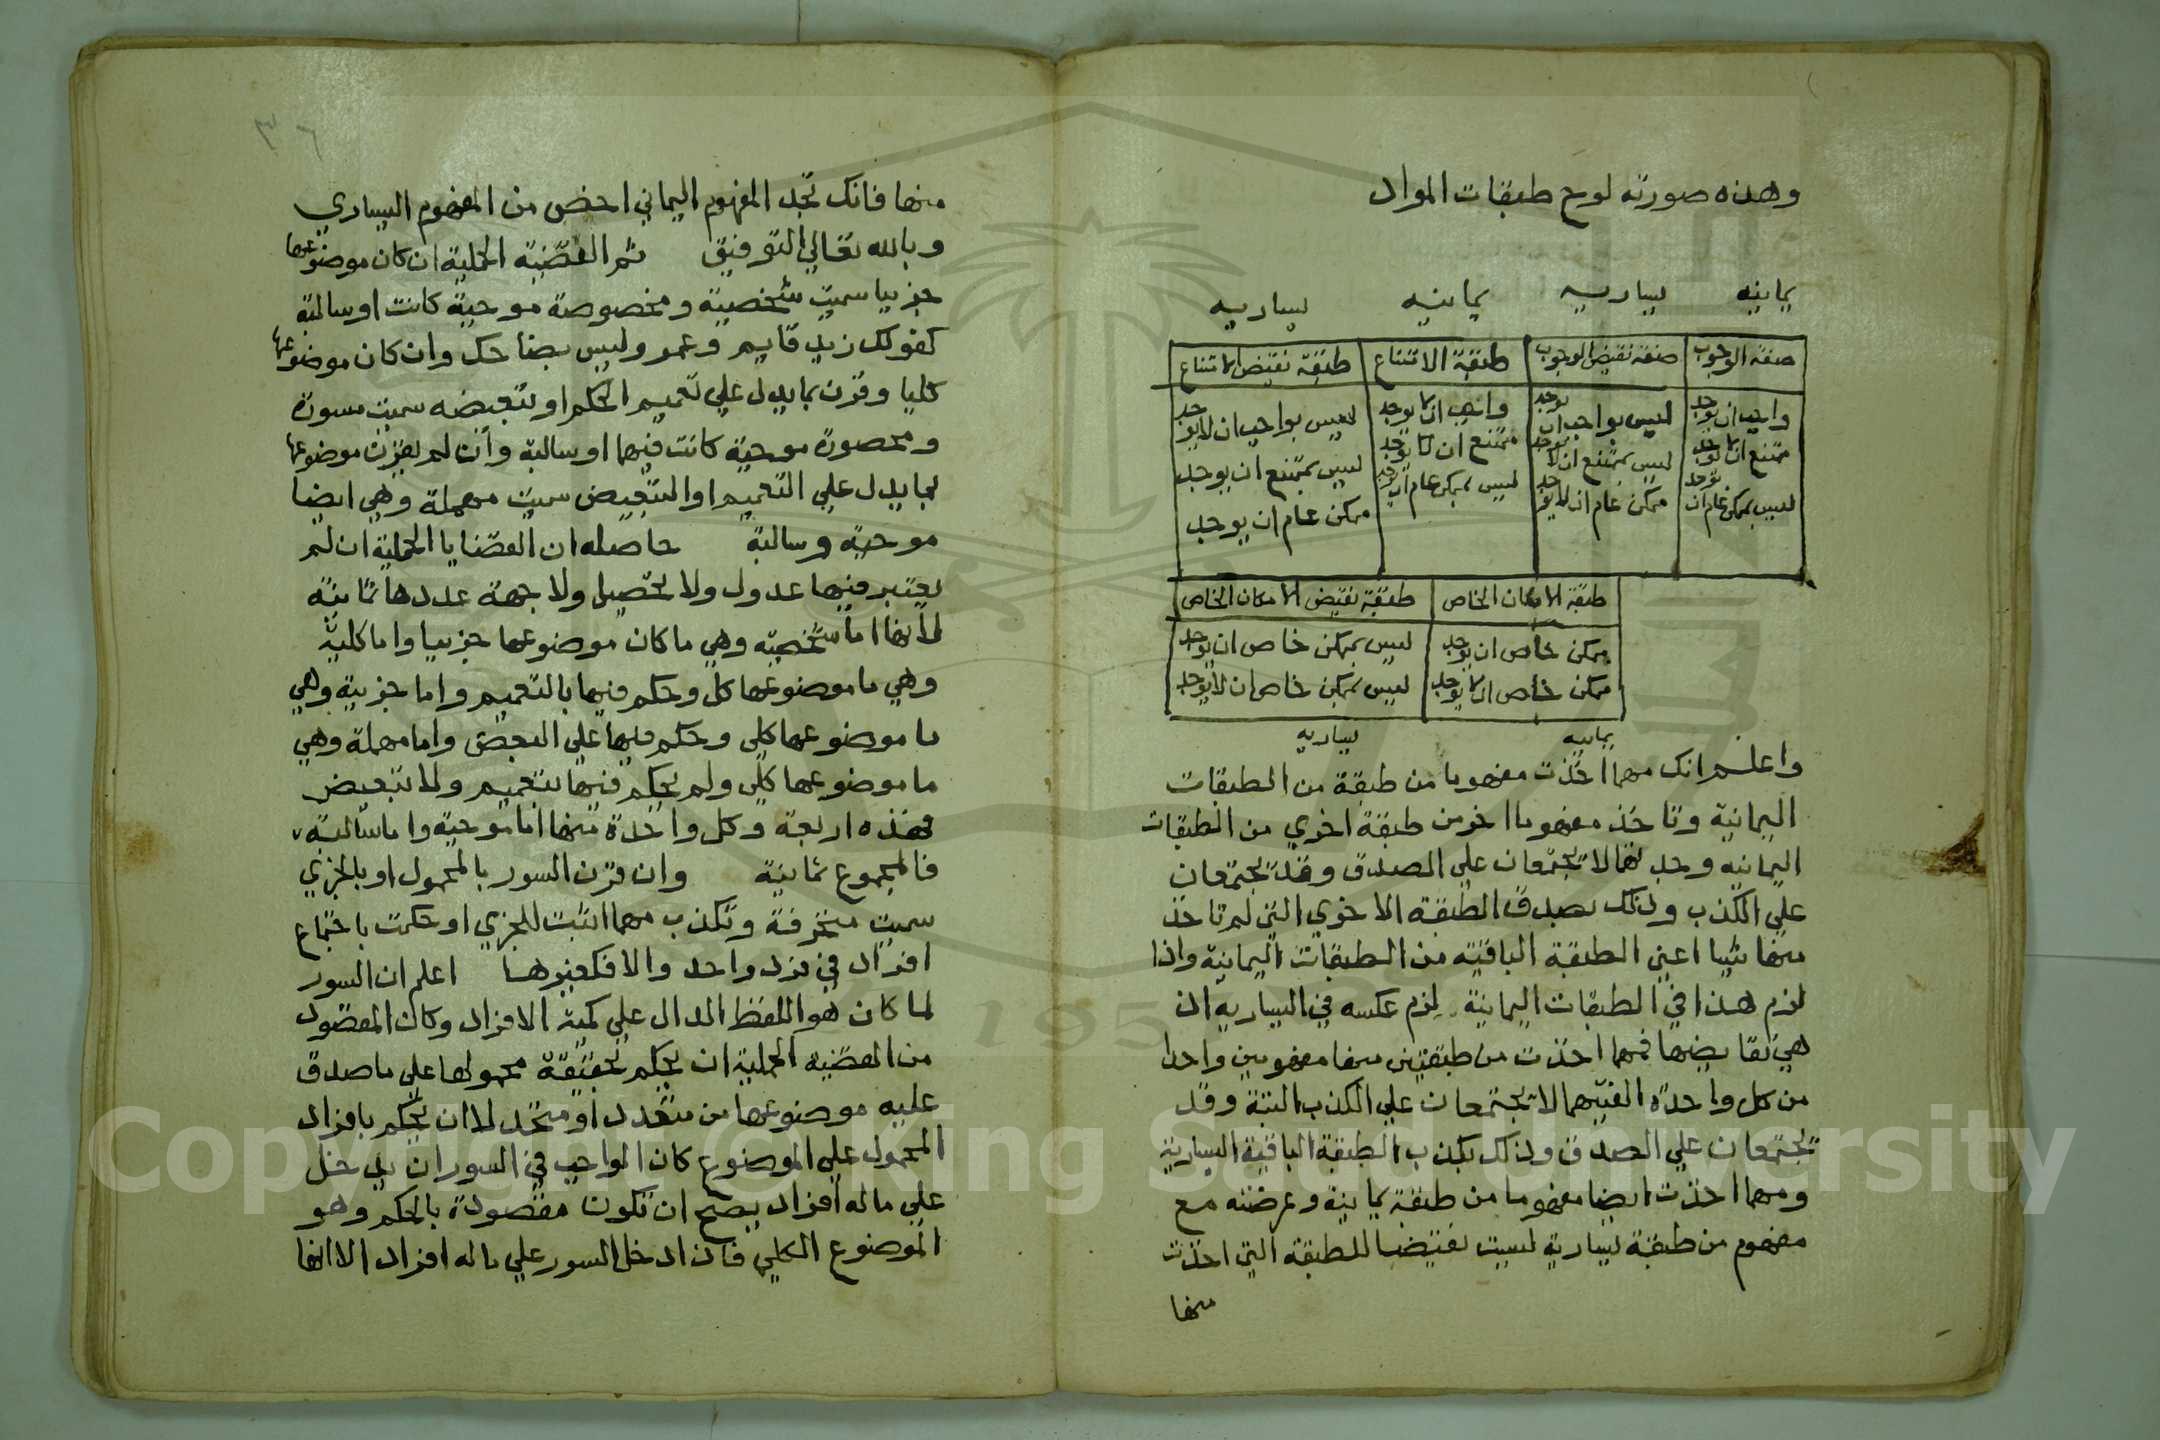 وهذه صورته لوح طبقات المواد
يمانيه يساريه يمانيه يساريه
صفة الوجوب صفة نقيض الوجوب طبقة الامتناع طبقة نقيض الامتناع
واجب ان يوجد ليس بواجب ان يوجد واجب ان لا يوجد ليس بواجب ان لا يوجد
ممتنع ان لا يوجد ليس بممتنع ان لا يوجد ممتنع ان يوجد ليس بممتنع ان يوجد
ليس بممكن عام ان يوجد ممكن عام ان لا يوجد ليس بممكن عام ان يوجد ممكن عام ان يوجد
طبقة الامكان الخاص طبقة نقيض الامكان الخاص
ممكن خاص ان يوجد ليس بممكن خاص ان يوجد
ممكن خاص ان لا يوجد ليس بممكن خاص ان لا يوجد
يمانيه يساريه
واعلم انك مهما اخذت مفهوما من طبقة من الطبقات
اليمانية وتاخذ مفهوما اخر من طبقة اخري من الطبقات
اليمانيه وجدتهما لا تجتمعان علي الصدق وقد تجتمعان
علي الكذب وذلك بصدق الطبقة الاخري التي لم تاخذ
منها شيا اعني الطبقة الباقيه من الطبقات اليمانية واذا
لزم هذا في الطبقات اليمانية لزم عكسه في اليساريه ان
هي نقايضها فمهما اخذت من طبقتين منها مفهومين واحدا
من كل واحدة الفيتهما لا يجتمعان علي الكذب البتة وقد
تجتمعان علي الصدق وذلك بكذب الطبقة الباقية اليسارية
ومهما اخذت ايضا مفهوما من طبقة يمانية وعرضته مع
مفهوم من طبقة يسارية ليست نقيضا للطبقة التي اخذت
منها
٣٦
منها فانك تجد المفهوم اليماني اخص من المفهوم اليساري
وبالله تعالي التوفيق ثم القضية الحملية ان كان موضوعها
جزييا سميت شخصية ومخصوصة موجبة كانت او سالبة
كقولك زيد قايم وعمرو ليس بضاحك وان كان موضوعها
كليا وقرن بما يدل علي تعميم الحكم او تبعيضه سميت مسورة
ومحصورة موجبة كانت فيهما او سالبة وان لم يقترن موضوعها
بما يدل علي التعميم او التبعيض سميت مهملة وهي ايضا
موجبة وسالبة حاصله ان القضايا الحملية ان لم
يعتبر فيها عدول ولا تحصيل ولا جهة عددها ثمانية
لانها اما شخصية وهي ما كان موضوعها جزييا واما كلية
وهي ما موضوعها كل وحكم فيها بالتعميم واما جزيية وهي
ما موضوعها كلي وحكم فيها علي البعض واما مهملة وهي
ما موضوعها كلي ولم يحكم فيها بتعميم ولا تبعيض
فهذه اربعة وكل واحدة منها اما موجبة واما سالبة
فالمجموع ثمانية وان قرن السور بالمحمول او بالجزي
سميت منحرفة وتكذب مهما اثبت للجزي او حكمت باجتماع
افراد في فرد واحد والا فكغيرها اعلم ان السور
لما كان هو اللفظ الدال علي كمية الافراد وكان المقصود
من القضيه الحملية ان يحكم بحقيقة محمولها علي ما صدق
عليه موضوعها من متعدد او متحد لا ان يحكم بافراد
المحمول علي الموضوع كان الواجب في السور ان يدخل
علي ما له افراد يصح ان تكون مقصودة بالحكم وهو
الموضوع الكلي فان ادخل السور علي ما له افراد الا انها
Copyright © King Saud University
195